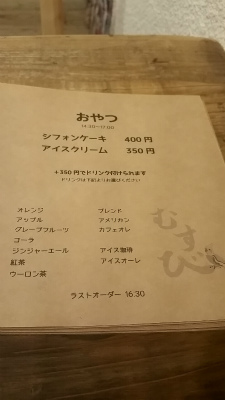 おやつ
14:30~17:00
シフォンケーキ 400円
アイスクリーム 350円
+350円でドリンク付けられます
ドリンクは下記よりお選びください
オレンジ
アップル
グレープフルーツ
コーラ
ジンジャーエール
紅茶
ウーロン茶
ブレンド
アメリカン
カフェオレ
アイス珈琲
アイスオーレ
むすび
ラストオーダー 16:30